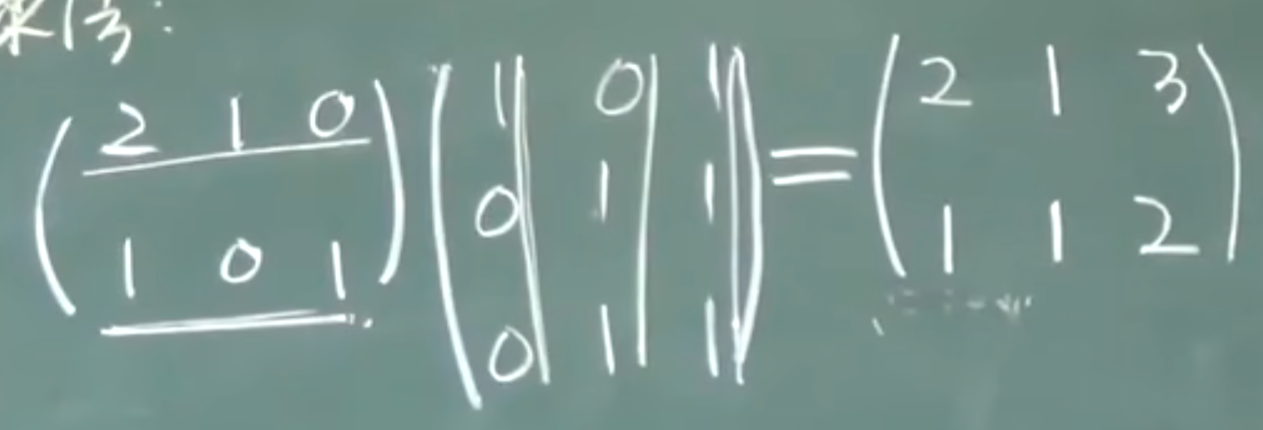 2 1 0
1 0 1
1 0 1
0 1 1
0 1 1
=
2 1 3
1 1 2